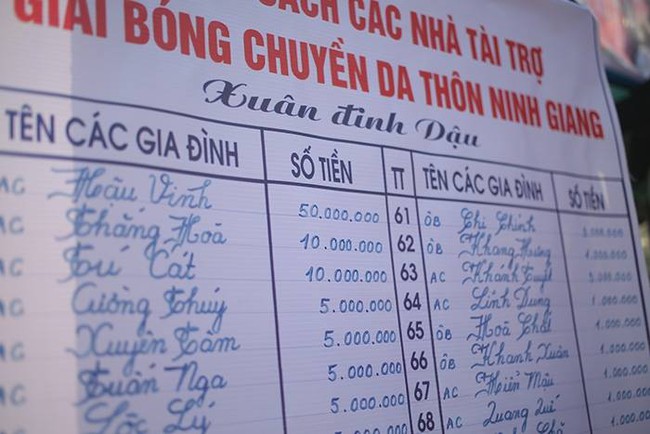 SÁCH CÁC NHÀ TÀI TRỢ
GIẢI BÓNG CHUYỀN DA THÔN NINH GIANG
Xuân đinh Dậu
TÊN CÁC GIA ĐÌNH SỐ TIỀN TT TÊN CÁC GIA ĐÌNH SỐ TIỀN
AC Hậu Vinh 50.000.000 61 ÔB Chi Chinh
AC Thăng Hoà 10.000.000 62 ÔB Khang Hương 1.000.000
AC Tú Cát 10.000.000 63 AC Khánh Tuyết
AC Cường Thúy 5.000.000 64 AC Linh Dung 1.000.000
AC Xuyên Tâm 5.000.000 65 ÔB Hoà Chất 1.000.000
AC Tuấn Nga 5.000.000 66 ÔB Khanh Xuân 1.000.000
AC Lộc Lý 5.000.000 67 AC Hiển Mậu 1.000.000
5.000.000 68 AC Quang Quế